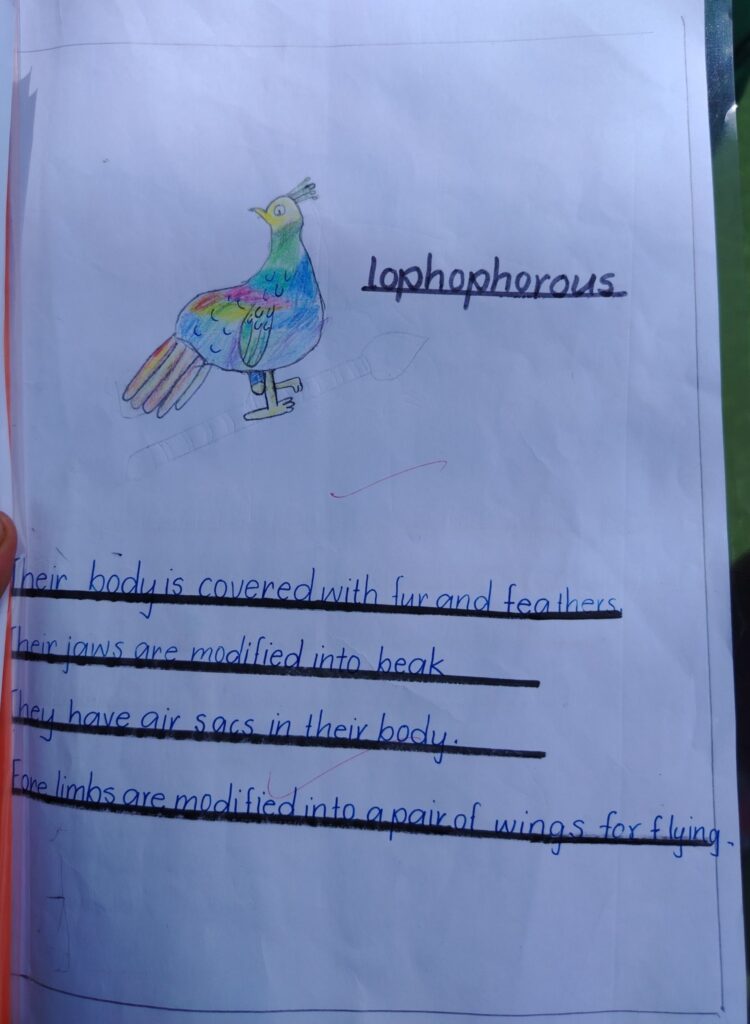 lophophorous
Their body is covered with fur and feathers.
Their jaws are modified into beak
They have air sacs in their body.
Fore limbs are modified into a pair of wings for flying.